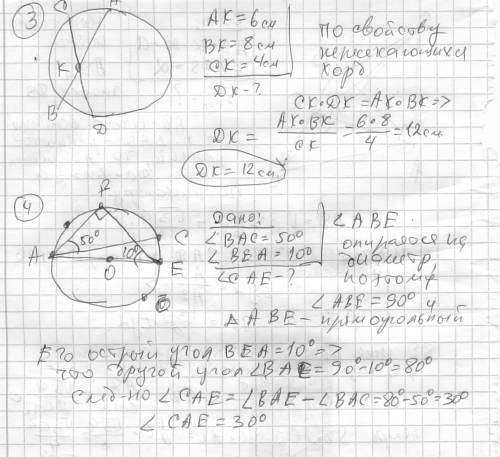 3
C A
K
B
D
AK=6см
BK=8см
CK=4см
DK-?
по свойству
пересекающихся
хорд
CK·DK=AK·BK=>
DK= AK·BK/CK = 6·8/4 = 12см.
DK=12см.
4
B
50°
A
C
10°
O
E
Дано:
∠BAC=50°
∠BEA=10°
∠CAE-?
∠ABE
опирается на
диаметр,
поэтому
∠ABE=90° и
△ABE-прямоугольный
Его острый угол BEA=10°=>
что другой угол ∠BAE=90°-10°=80°
След-но ∠CAE=∠BAE-∠BAC=80°-50°=30°
∠CAE=30°